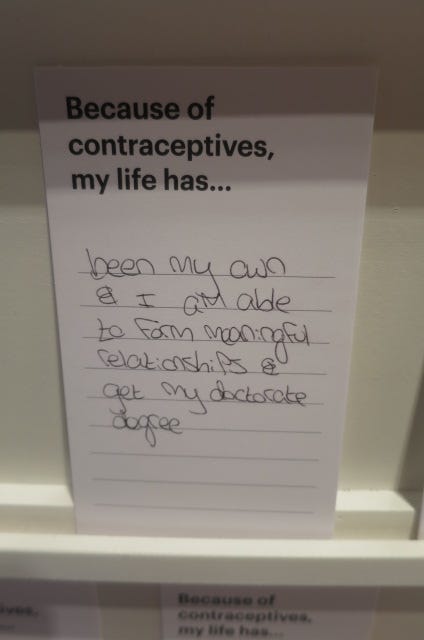 Because of
contraceptives,
my life has...
been my own
& I am able
to form meaningful
relationships &
get my doctorate
degree
ives,
Because of
contraceptives,
my life has...